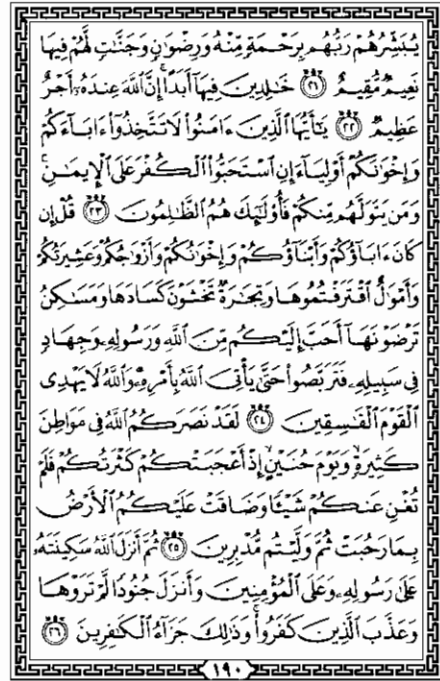 يُبَشِّرُهُمْ رَبُّهُم بِرَحْمَةٍ مِّنْهُ وَرِضْوَٰنٍ وَجَنَّٰتٍ لَّهُمْ فِيهَا
نَعِيمٌ مُّقِيمٌ ٢١ خَٰلِدِينَ فِيهَآ أَبَدًا إِنَّ ٱللَّهَ عِندَهُۥٓ أَجْرٌ
عَظِيمٌ ٢٢ يَٰٓأَيُّهَا ٱلَّذِينَ ءَامَنُوا۟ لَا تَتَّخِذُوٓا۟ ءَابَآءَكُمْ
وَإِخْوَٰنَكُمْ أَوْلِيَآءَ إِنِ ٱسْتَحَبُّوا۟ ٱلْكُفْرَ عَلَى ٱلْإِيمَٰنِ ۚ
وَمَن يَتَوَلَّهُم مِّنكُمْ فَأُو۟لَٰٓئِكَ هُمُ ٱلظَّٰلِمُونَ ٢٣ قُلْ إِن
كَانَ ءَابَآؤُكُمْ وَأَبْنَآؤُكُمْ وَإِخْوَٰنُكُمْ وَأَزْوَٰجُكُمْ وَعَشِيرَتُكُمْ
وَأَمْوَٰلٌ ٱقْتَرَفْتُمُوهَا وَتِجَٰرَةٌ تَخْشَوْنَ كَسَادَهَا وَمَسَٰكِنُ
تَرْضَوْنَهَآ أَحَبَّ إِلَيْكُم مِّنَ ٱللَّهِ وَرَسُولِهِۦ وَجِهَادٍ
فِى سَبِيلِهِۦ فَتَرَبَّصُوا۟ حَتَّىٰ يَأْتِىَ ٱللَّهُ بِأَمْرِهِۦ ۗ وَٱللَّهُ لَا يَهْدِى
ٱلْقَوْمَ ٱلْفَٰسِقِينَ ٢٤ لَقَدْ نَصَرَكُمُ ٱللَّهُ فِى مَوَاطِنَ
كَثِيرَةٍ ۙ وَيَوْمَ حُنَيْنٍ ۙ إِذْ أَعْجَبَتْكُمْ كَثْرَتُكُمْ فَلَمْ
تُغْنِ عَنكُمْ شَيْـًٔا وَضَاقَتْ عَلَيْكُمُ ٱلْأَرْضُ
بِمَا رَحُبَتْ ثُمَّ وَلَّيْتُم مُّدْبِرِينَ ٢٥ ثُمَّ أَنزَلَ ٱللَّهُ سَكِينَتَهُۥ
عَلَىٰ رَسُولِهِۦ وَعَلَى ٱلْمُؤْمِنِينَ وَأَنزَلَ جُنُودًا لَّمْ تَرَوْهَا
وَعَذَّبَ ٱلَّذِينَ كَفَرُوا۟ ۚ وَذَٰلِكَ جَزَآءُ ٱلْكَٰفِرِينَ ٢٦
١٩٠